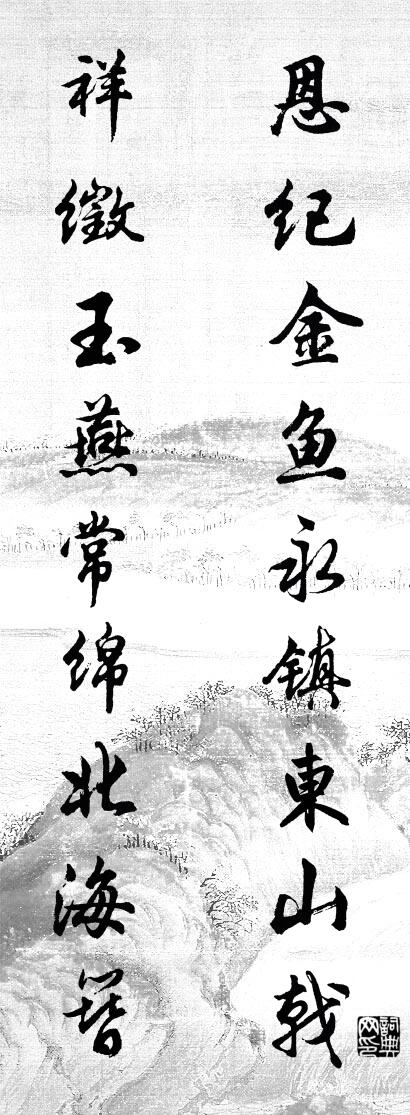 恩纪金鱼永镇東山戟
祥徵玉燕常绵北海簪
詞典网印